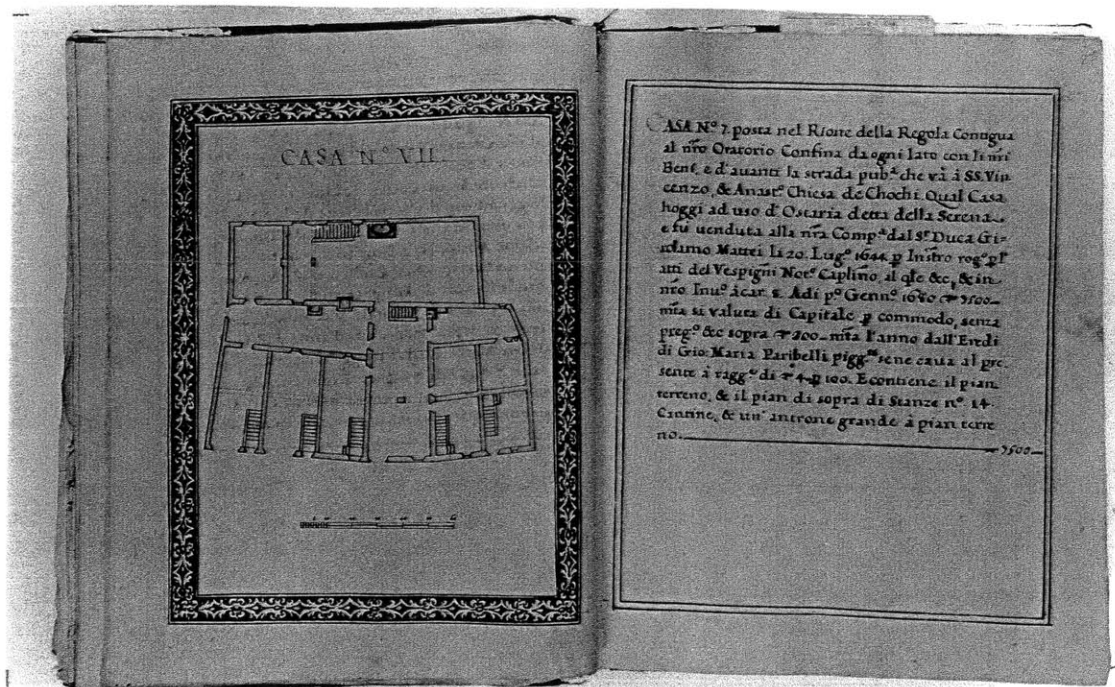 CASA N.º VII.
CASA N.º 7. posta nel Rione della Regola Contigua
al nr̃o Oratorio Confina da ogni lato con li nr̃i
Beni, e d'auanti la strada pub.ª che và à SS. Vin
cenzo, & Anast.º Chiesa de Chochi. Qual Casa
hoggi ad uso d'Ostaria detta della Serena
e fù uenduta alla nr̃a Comp.ª dal S.r Duca Gi=
rolamo Mattei li 20. Lug.º 1644. p Instro rog.º p l'
atti del Vespigni Not.º Caplino, al qle &c, & in
nr̃o Inu.º à car. Adi p.º Genn.º 1680 7500
mta si valuta di Capitale p commodo, senza
preg.º &c sopra 300 mta l'anno dall'Eredi
di Gio: Maria Paribelli pigg.ni sene caua al pre
sente à ragg.º di 4. p 100. E contiene il pian
terreno, & il pian di sopra di Stanze n.º 14.
Cantine, & un' antrone grande à pian terre
no. 7500